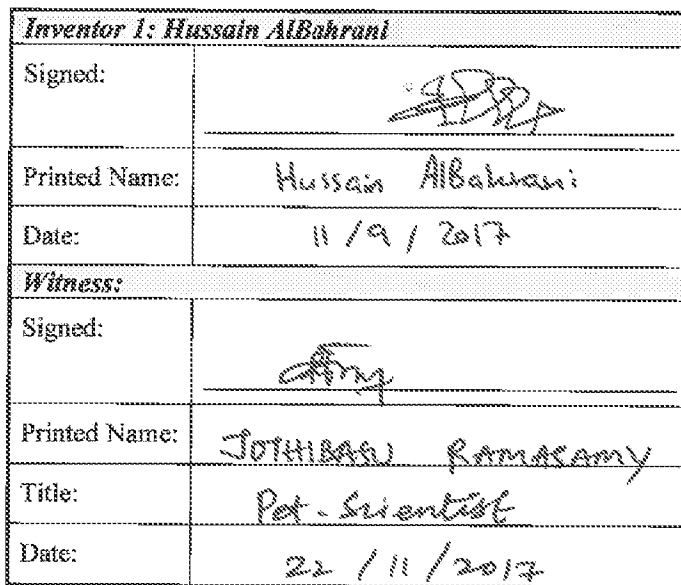 Inventor 1: Hussain AlBahrani
Signed:
Printed Name: Hussain AlBahrani
Date: 11/9/2017
Witness:
Signed:
Printed Name: JOTHIBASU RAMASAMY
Title: Pet-Scientist
Date: 22/11/2017